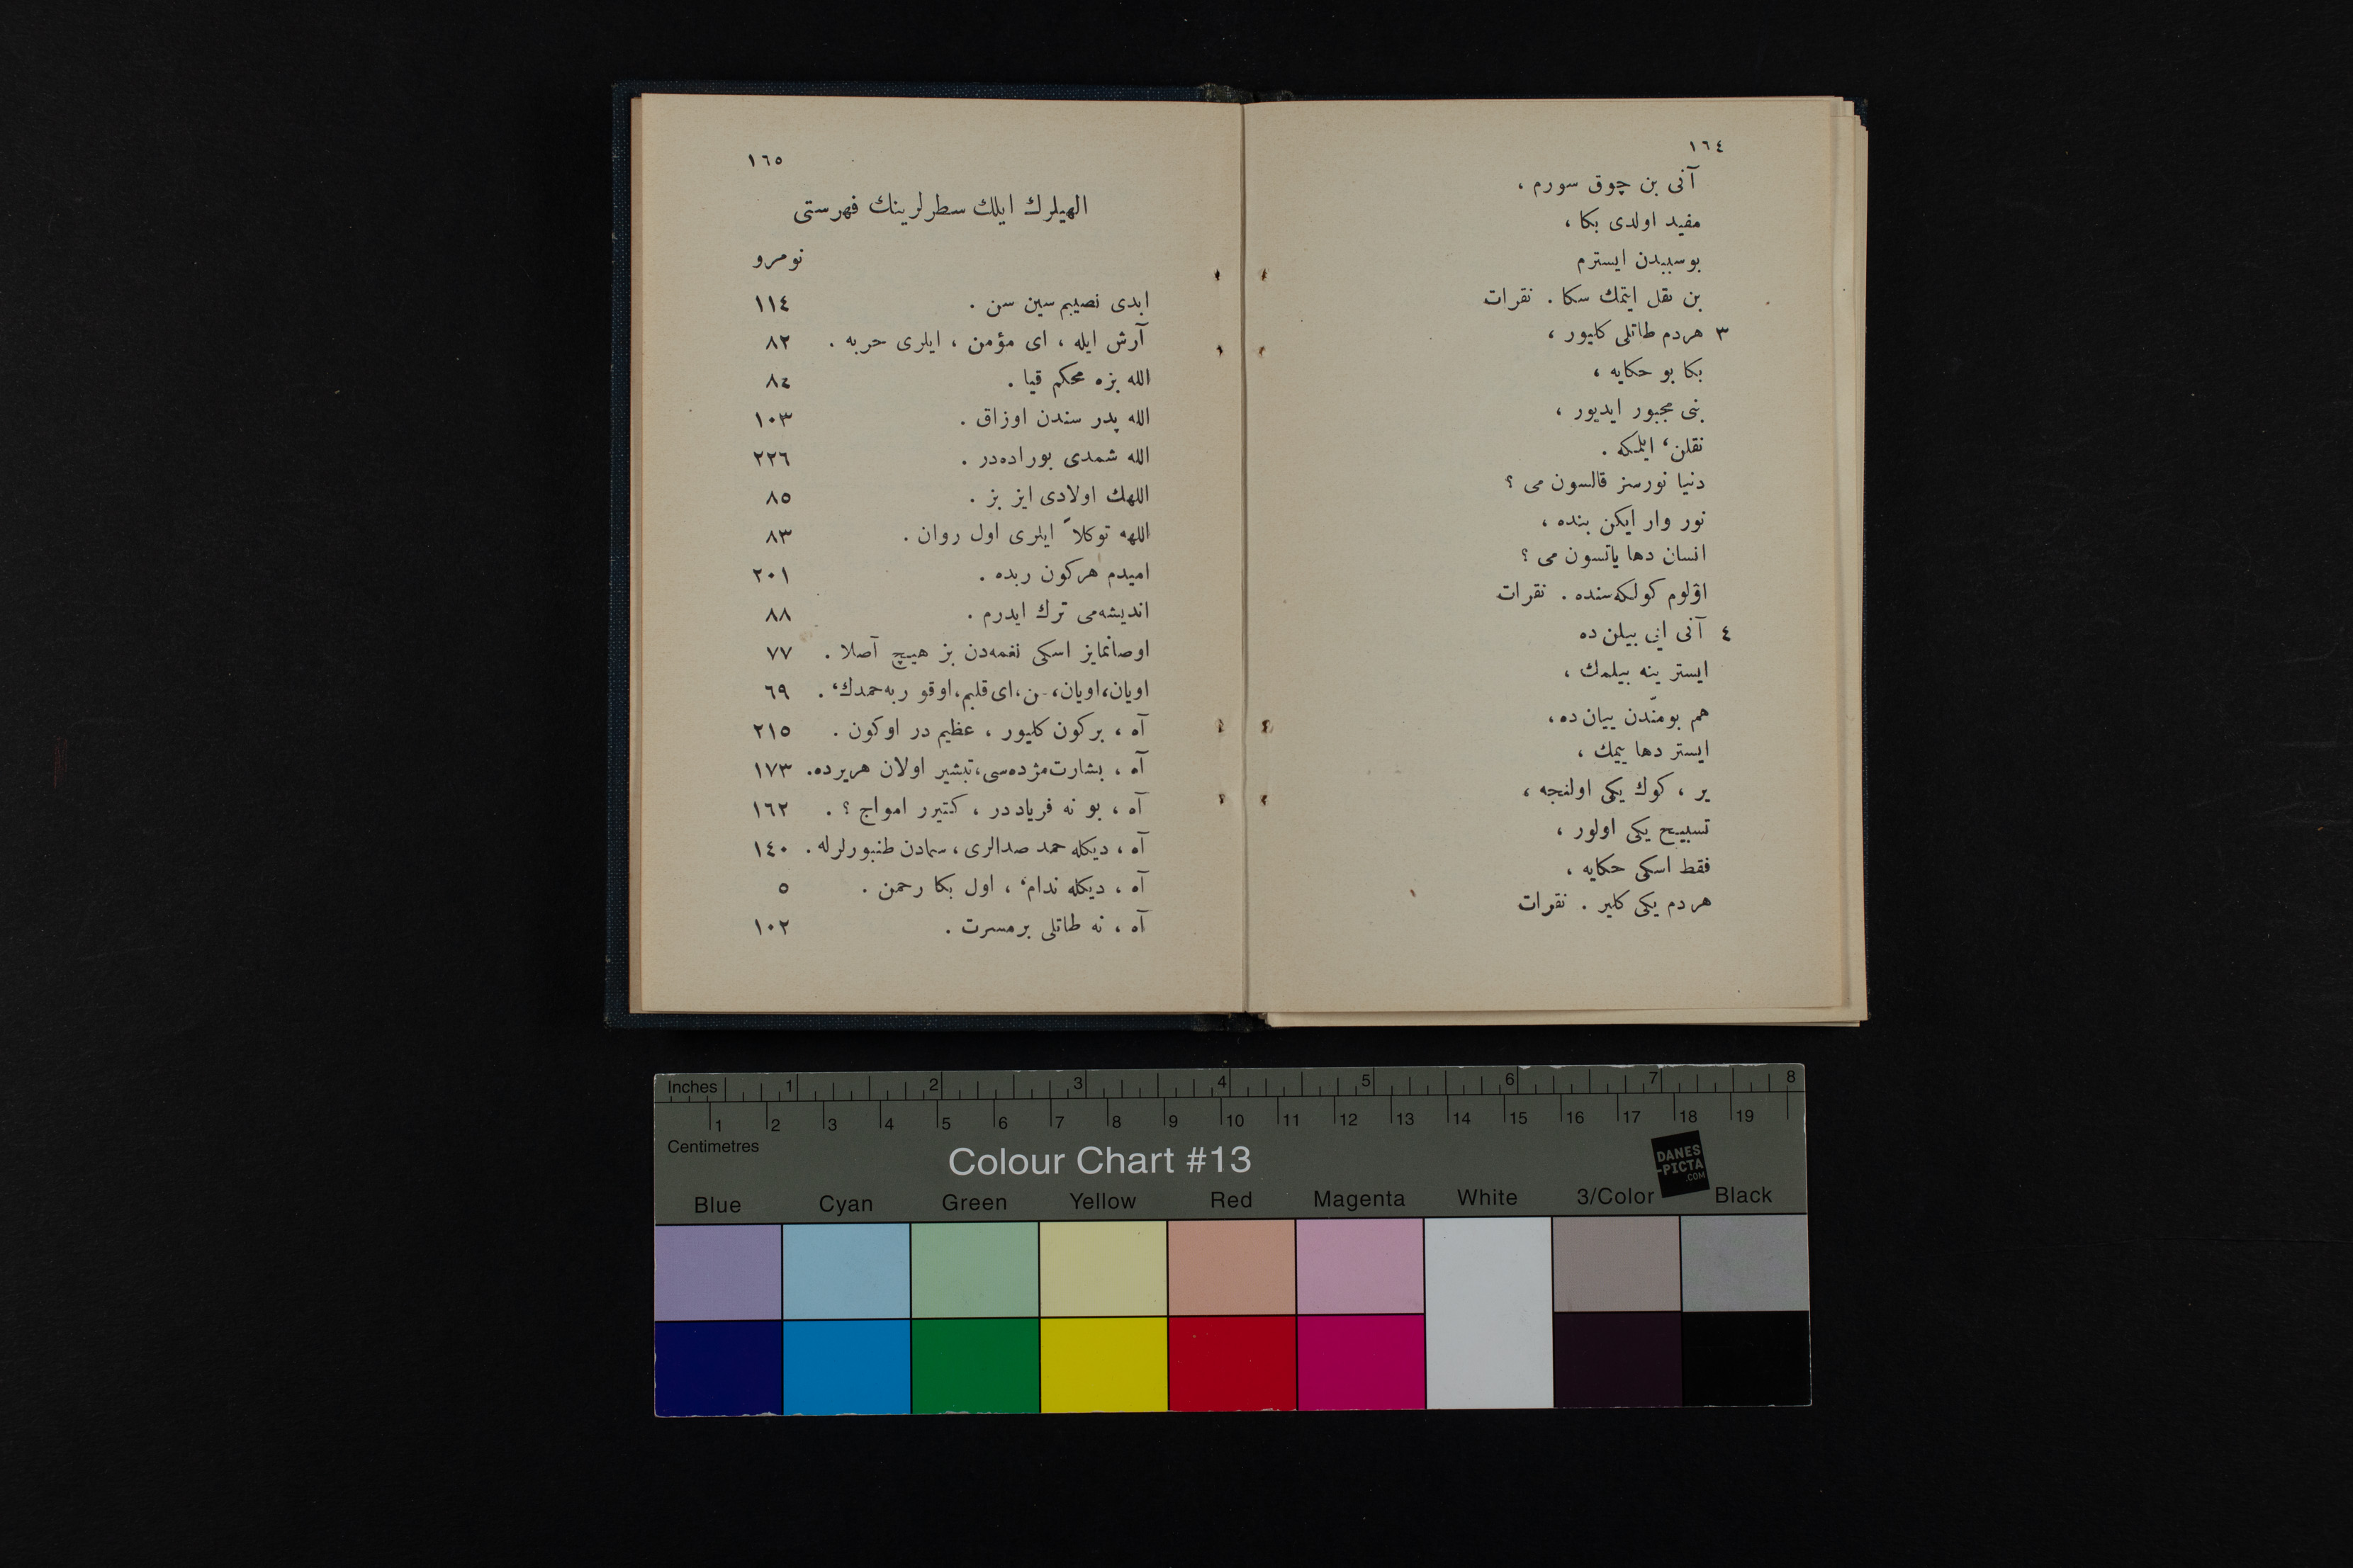 ١٦٤
آنى بن چوق سورم ،
مفيد اولدى بكا ،
بوسببدن ايسترم
بن نقل ايتمك سكا . نقرات
٣ هردم طاتلى كليور ،
بكا بو حكايه ،
بنى مجبور ايديور ،
نقلن، ايلمكه .
دنيا نورسز قالسون مى ؟
نور وار ايكن بنده ،
انسان دها ياتسون مى ؟
اۆلوم كولكه‌سنده . نقرات
٤ آنى ايى بيلن ده
ايستر ينه بيلمك ،
هم بومنّدن ييان ده،
ايستر دها ييمك ،
ير ، كوك يكى اولنجه ،
تسبيح يكى اولور ،
فقط اسكى حكايه ،
هردم يكى كلير . نقرات
١٦٥
الهيلرك ايلك سطرلرينك فهرستى
نومرو
ابدى نصيبم سين سن . ١١٤
آرش ايله ، اى مؤمن ، ايلرى حربه . ٨٢
الله بزه محكم قيا . ٨٤
الله پدر سندن اوزاق . ١٠٣
الله شمدى بوراده‌در . ٢٢٦
اللهك اولادى ايز بز . ٨٥
اللهه توكلاً ايلرى اول روان . ٨٣
اميدم هركون ربده . ٢٠١
انديشه‌مى ترك ايدرم . ٨٨
اوصانمايز اسكى نغمه‌دن بز هيچ آصلا . ٧٧
اويان،اويان، ن،اى قلبم،اوقو ربه‌حمدك، . ٦٩
آه ، بركون كليور ، عظيم در اوكون . ٢١٥
آه ، بشارت‌مژده‌سى،تبشير اولان هريرده. ١٧٣
آه ، بو نه فرياددر ، كتيرر امواج ؟ . ١٦٢
آه ، ديكله حمد صدالرى، سمادن طنبورلرله . ١٤٠
آه ، ديكله ندام، ، اول بكا رحمن . ٥
آه ، نه طاتلى برمسرت . ١٠٢
Inches 1 2 3 4 5 6 7 8
1 2 3 4 5 6 7 8 9 10 11 12 13 14 15 16 17 18 19
Centimetres
Colour Chart #13
DANES
-PICTA
.COM
Blue Cyan Green Yellow Red Magenta White 3/Color Black